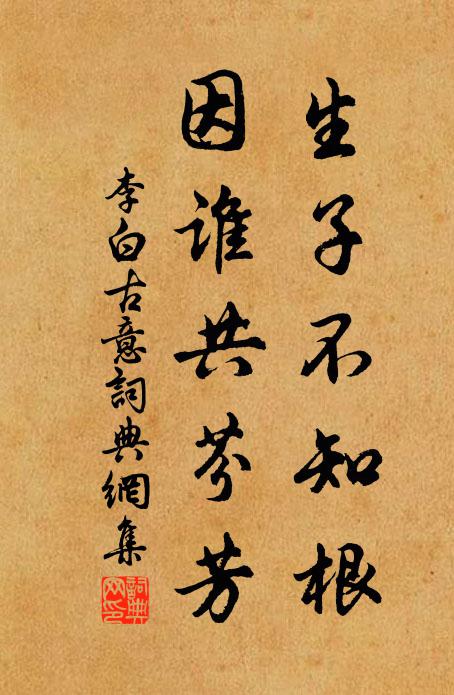 生子不知根
因谁共芬芳
李白古意詞典網集
詞典
网印